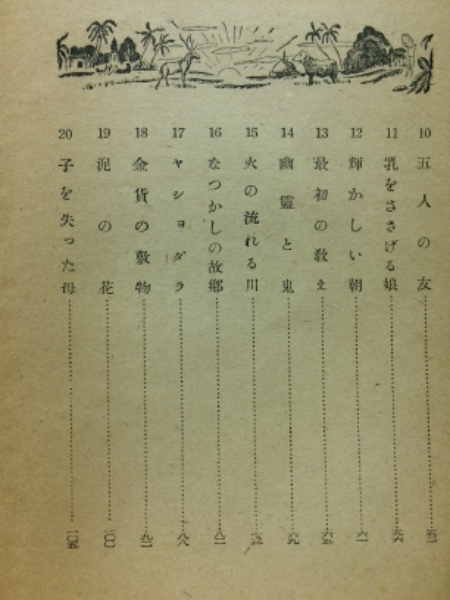 10 五人の友 五一
11 乳をささげる娘 五六
12 輝かしい朝 六一
13 最初の教え 六五
14 幽霊と鬼 六九
15 火の流れる川
16 なつかしの故郷 八一
17 ヤショダラ 八八
18 金貨の敷物 九一
19 泥の花 一〇〇
20 子を失った母 一〇五